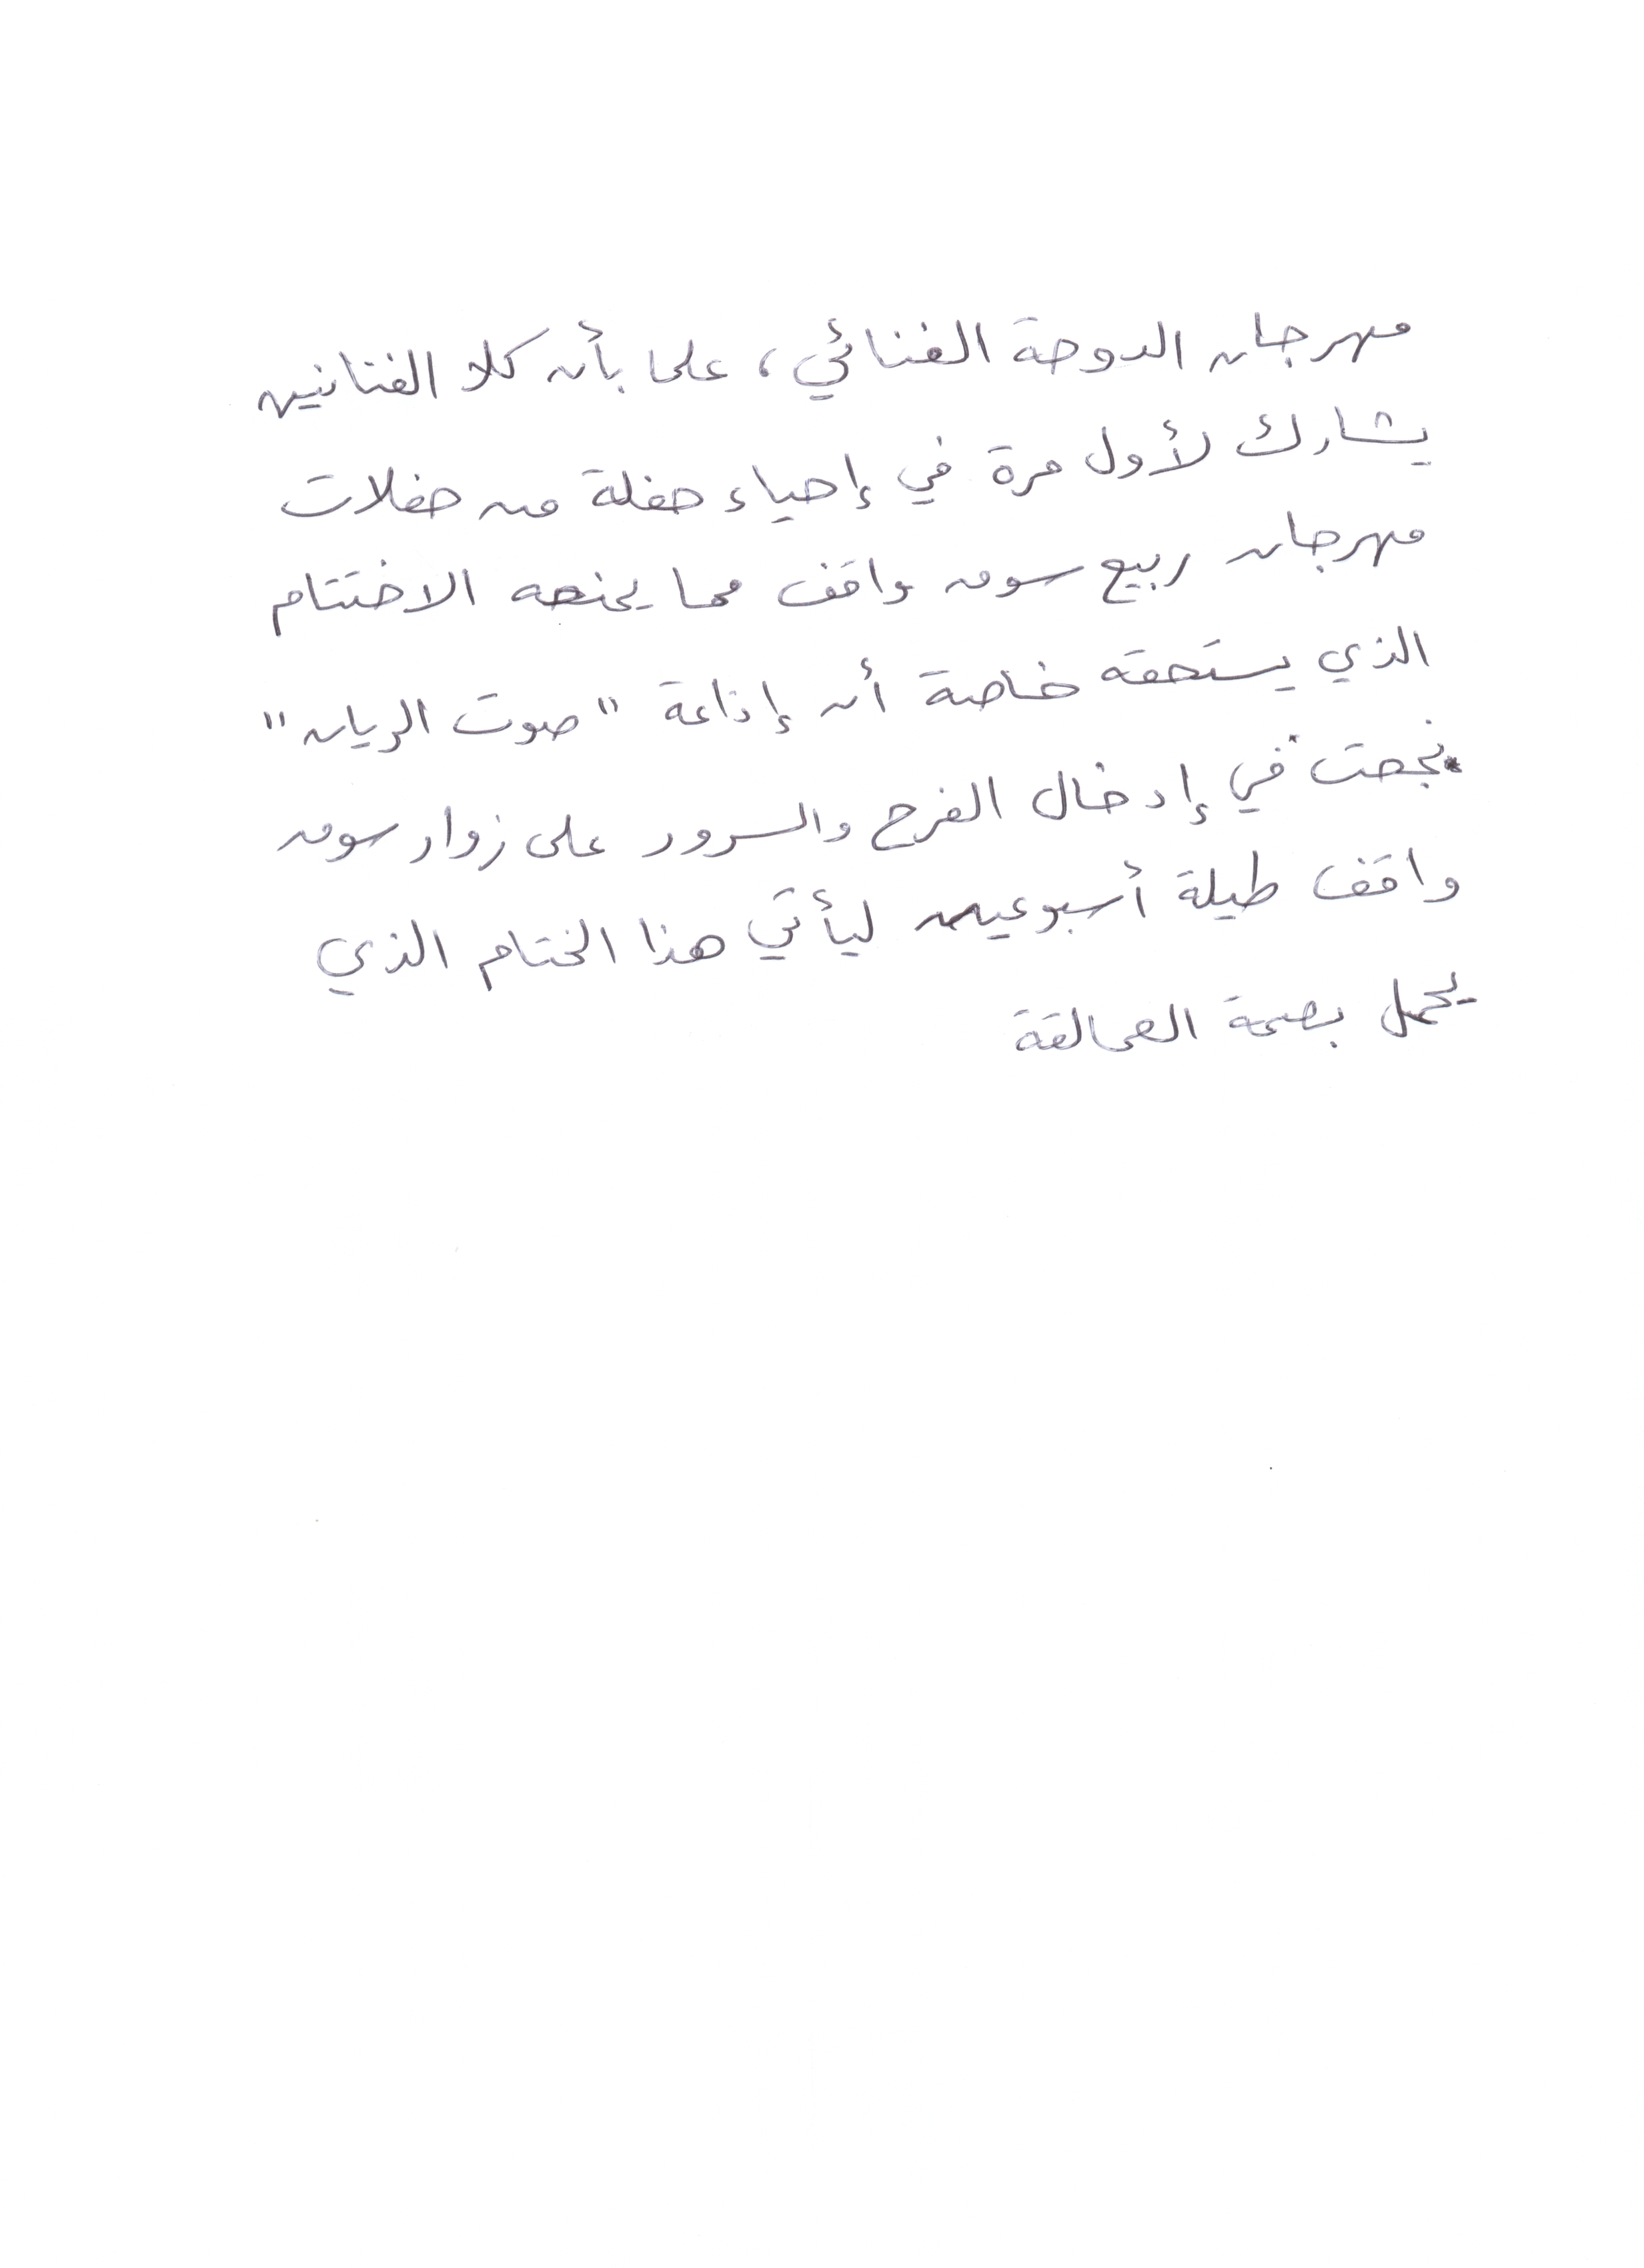 مهرجان الدوحة الغنائي، علما بأن كلا الفنانين
يشارك لأول مرة في إحياء حفلة من حفلات
مهرجان ربيع سوق واقف مما يمنحه الاختتام
الذي يستحقه خاصة أن إذاعة "صوت الريان"
نجحت في إدخال الفرح والسرور على زوار سوق
واقف طيلة أسبوعين ليأتي هذا الختام الذي
يحمل بصمة العمالقة